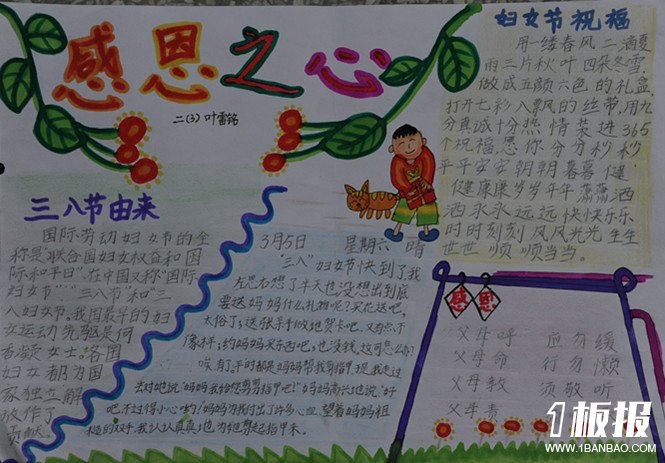 感恩之心
二(3) 叶雷铭
三八节由来
国际劳动妇女节的全
称是"联合国妇女权益和国
际和平日"。在中国又称"国际
妇女节""三八节"和"三
八妇女节。我国最早的妇
女运动先驱是何
香凝女士。各国
妇女都为国
家独立解
放作了
贡献。
3月5日 星期六 晴
"三八"妇女节快到了我
左思右想了半天也没想出到底
要送妈妈什么礼物呢?买花送吧,
太俗了;送张亲手做地贺卡吧,又有点不
像样;约妈妈买东西吧,也没钱,这可怎么办?
唉,有了,平时都是妈妈帮我剪指甲,
去对她说:"妈妈我给您剪剪指甲吧!"妈妈高兴地说:"好
吧,不过得小心哟!妈妈为我付出了许多心血,望着妈妈粗
糙的双手,我认认真真地为她剪起指甲来。
妇女节祝福
用一缕春风二滴夏
雨三片秋叶四朵冬雪,
做成五颜六色的礼盒,
打开七彩八飘风的丝带,用九
分真诚十分热情装进365
个祝福,愿你分分秒秒
平平安安朝朝暮暮健
健康康岁岁年年潇潇洒
洒永永远远快快乐乐
时时刻刻风风光光生生
世世顺顺当当。
感恩
父母呼 应勿缓
父母命 行勿懒
父母教 须敬听
父母责
1板报
WWW.1BANBAO.COM